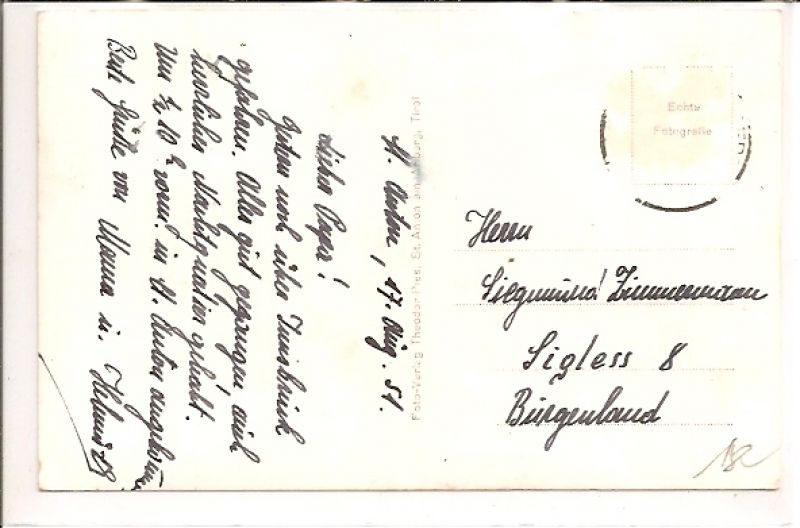 St. Anton, 17. Aug. 51.
Lieber Papa!
Gestern noch über Innsbruck
gefahren. Alles gut gegangen, auch
herrliches Nachtquartier gehabt.
Um ½ 10 h vorm. in St. Anton angekommen
Beste Grüße von Mama u. Helmut
Foto-Verlag Theodor Pies, St. Anton am Arlberg, Tirol
Echte
Fotografie
Herrn
Siegmund Zimmermann
Sigless 8
Burgenland